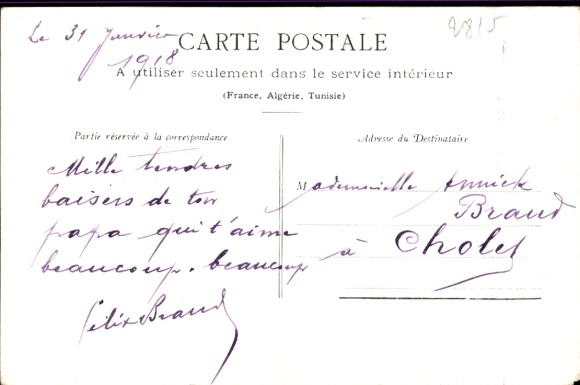 Le 31 Janvier
1918
2815
CARTE POSTALE
A utiliser seulement dans le service intérieur
(France, Algérie, Tunisie)
Partie réservée à la correspondance
Adresse du Destinataire
Mille tendres
baisers de ton
papa qui t'aime
beaucoup. beaucoup
Félix Braud
Mademoiselle Annick
Braud
à Cholet